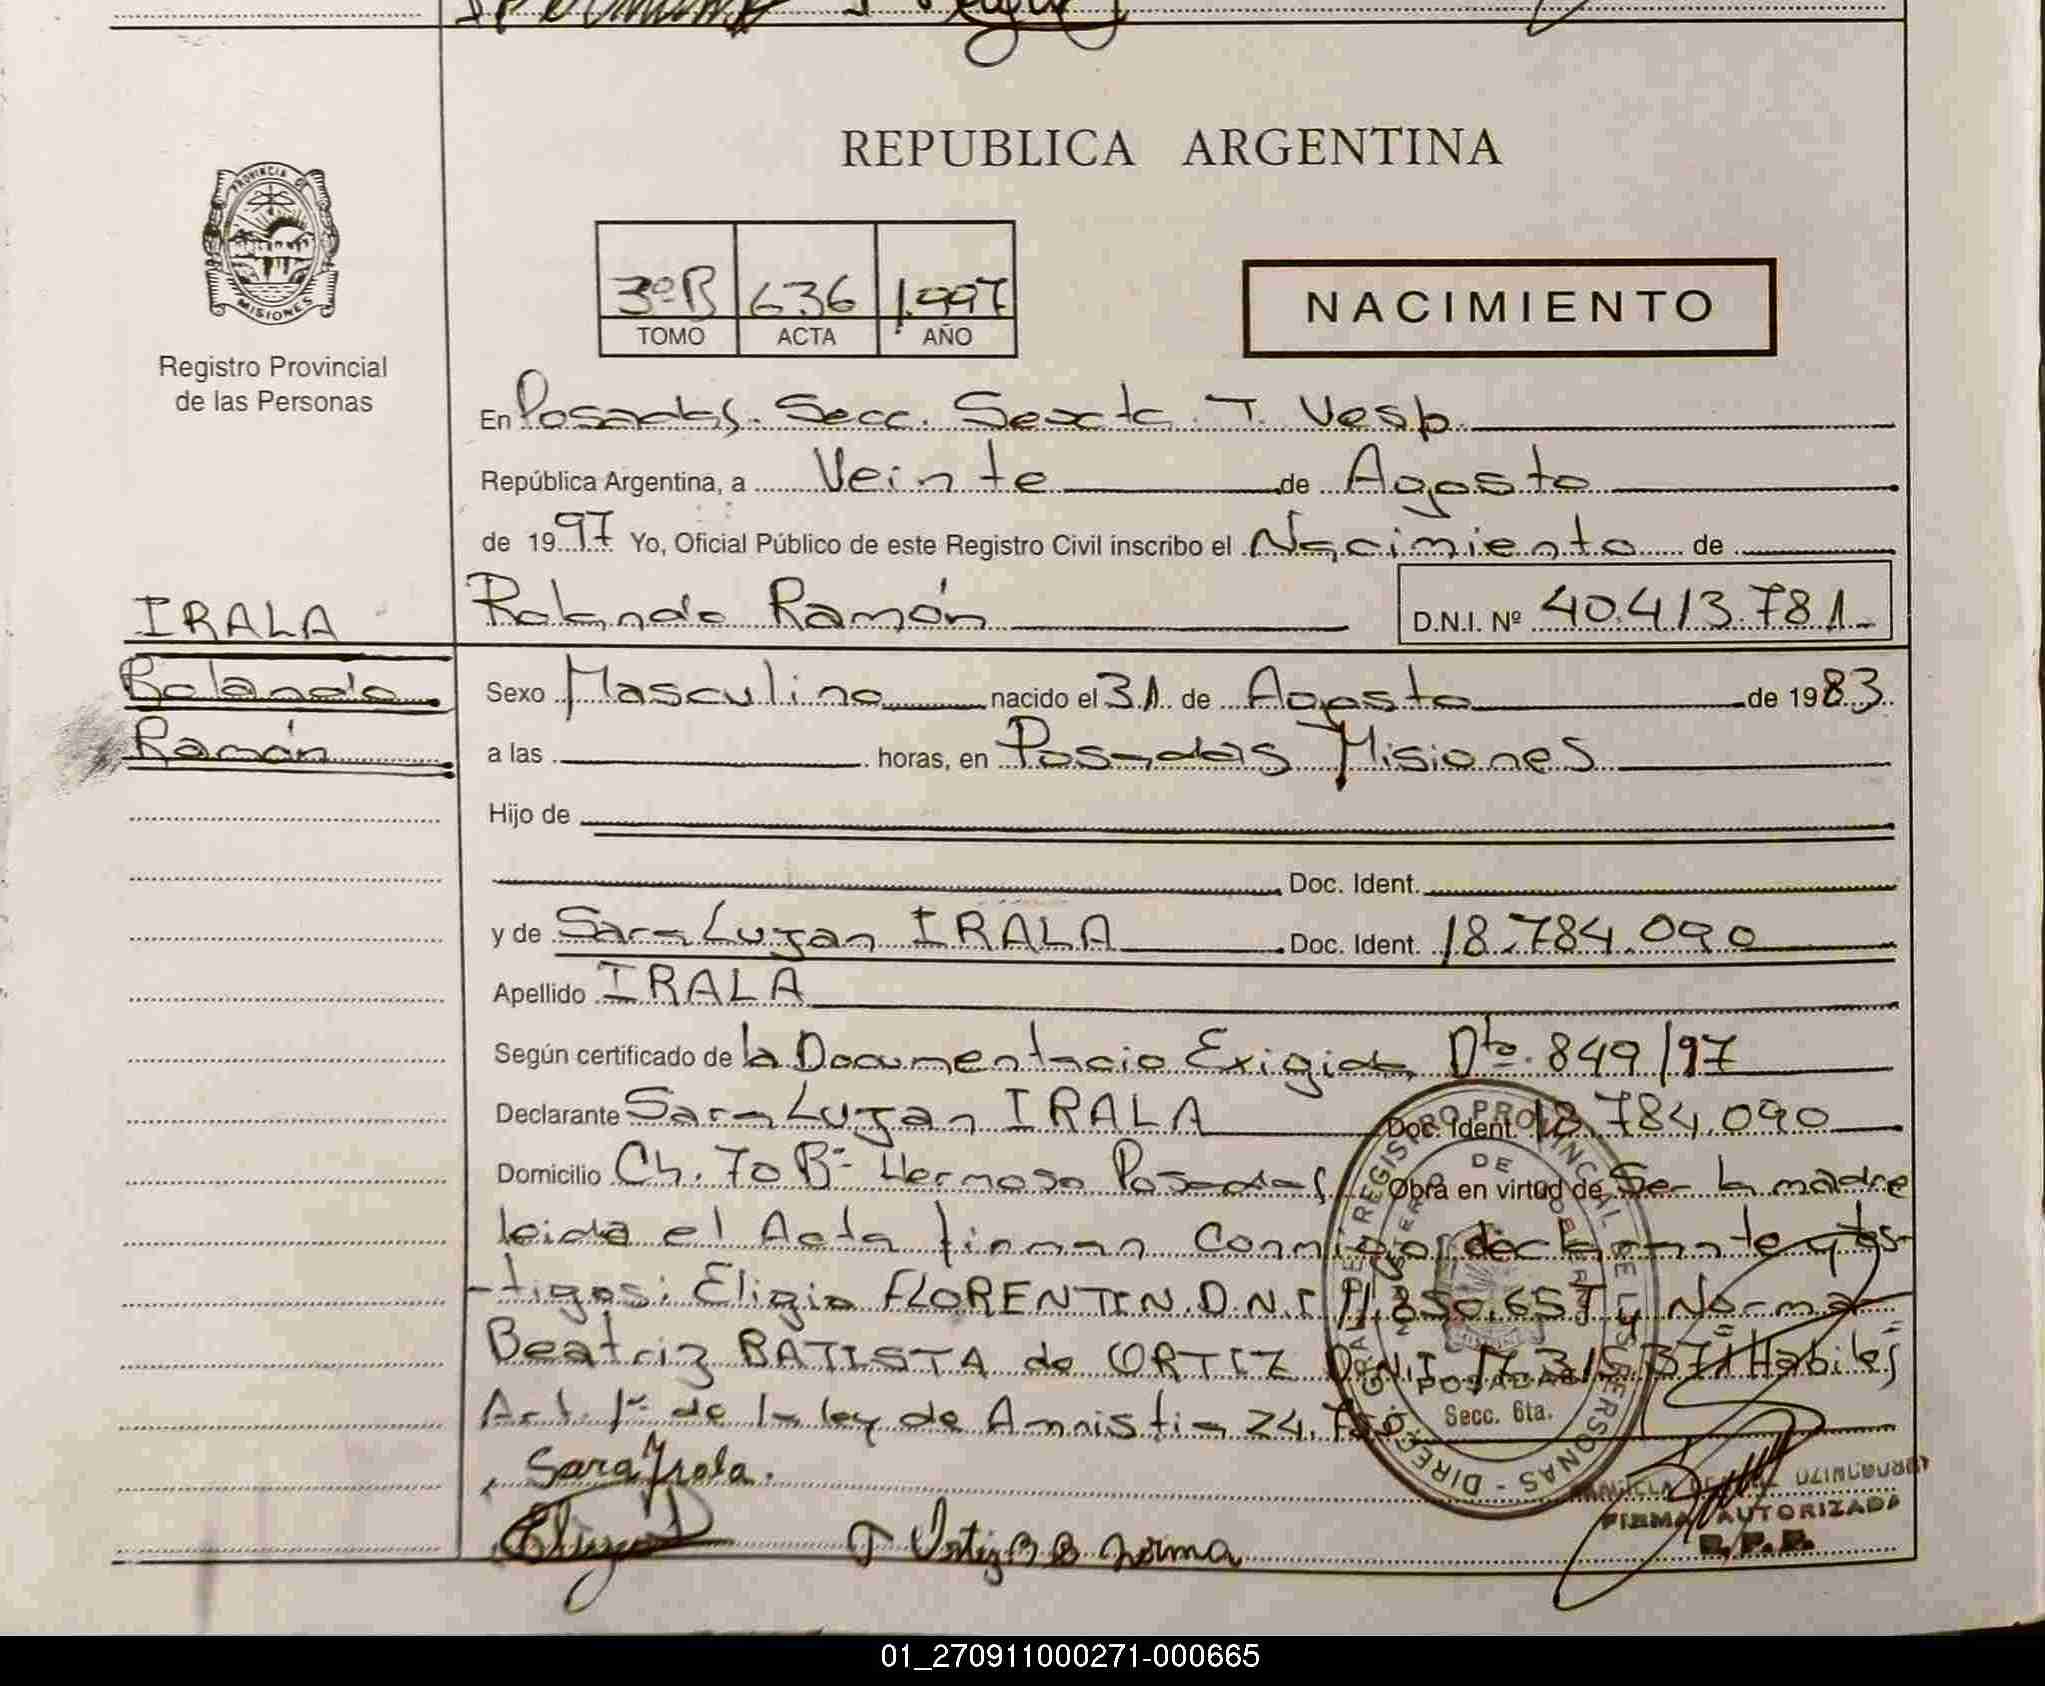 REPUBLICA ARGENTINA
PROVINCIA DE
MISIONES
Registro Provincial
de las Personas
3º B 636 1.997
TOMO ACTA AÑO
NACIMIENTO
En Posadas. Secc. Sexta. T. Vesp.
República Argentina, a Veinte de Agosto
de 1997 Yo, Oficial Público de este Registro Civil inscribo el Nacimiento de
IRALA
Rolando
Ramón
Rolando Ramón D.N.I. Nº 40.413.781
Sexo Masculino nacido el 31 de Agosto de 1983
a las horas, en Posadas Misiones
Hijo de
Doc. Ident.
y de Sara Lujan IRALA Doc. Ident. 18.784.090
Apellido IRALA
Según certificado de la Documentacio Exigida Dto. 849/97
Declarante Sara Lujan IRALA Doc. Ident. 18.784.090
Domicilio Ch. 70 Bº Hermoso Posadas Obra en virtud de Ser la madre
leida el Acta firman Conmigo declarante y tes-
-tigos: Eligio FLORENTIN D.N.I. 850.657 y Norma
Beatriz BATISTA de ORTIZ D.N.I. 17. Habiles
Art. 1º de la ley de Amnistia 24.
REGISTRO PROVINCIAL DE LAS PERSONAS - DIRECCION GENERAL
POSADAS
Secc. 6ta.
Sara Irala.
Ortiz B B Norma
FIRMA AUTORIZADA
R.P.P.
01_270911000271-000665